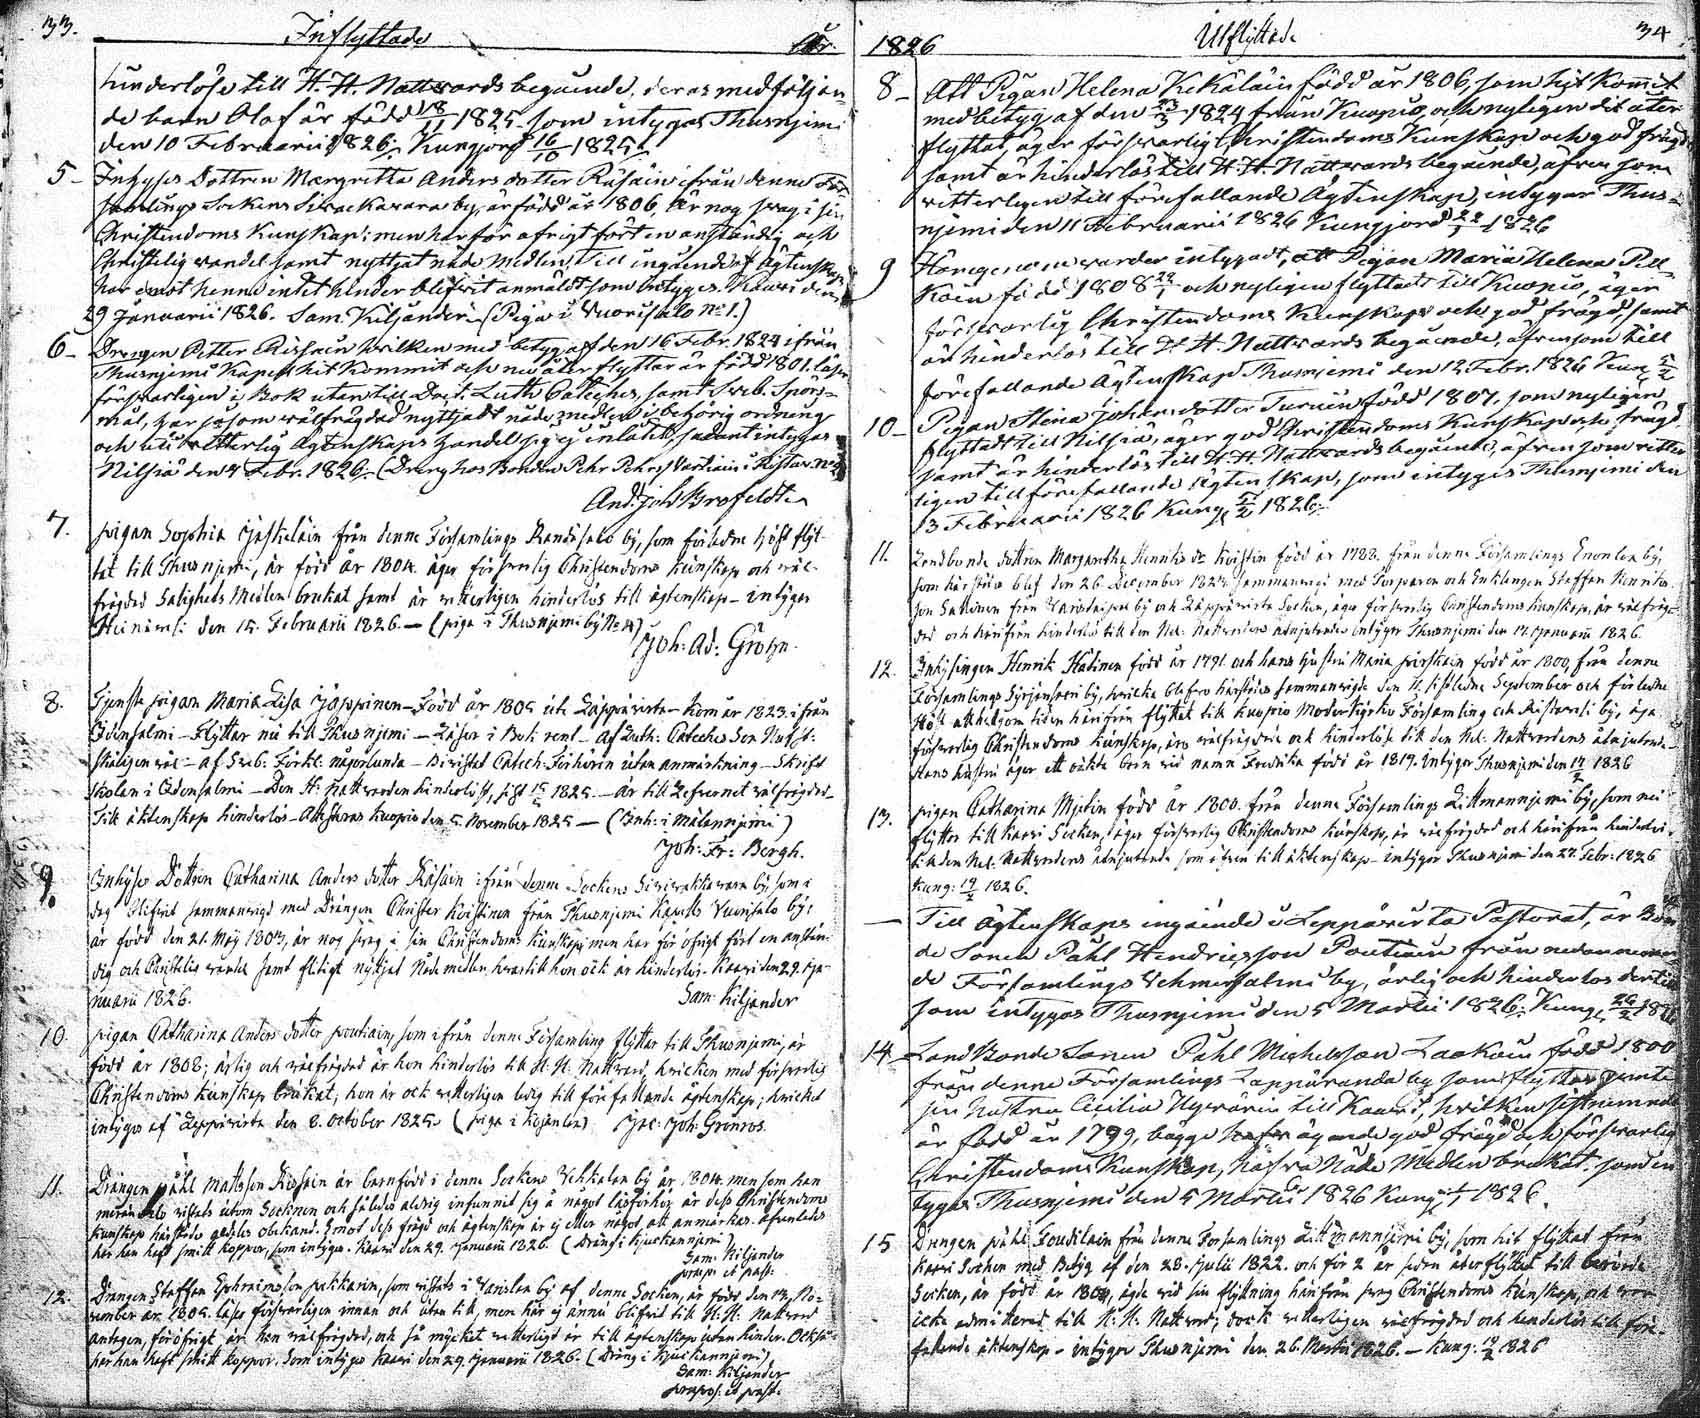 33. Inflyttade År
hinderlöse till H. H. Nattvards begående, deras medföljan-
de barn Olof är född 18/11 1825 som intygas Thusnjemi
den 10 Februarii 1826. Kungjord 16/10 1825
5 Inhyses Dottren Margretha Anders dotter Räsäin ifrån denne För-
samlings Sockens by, är född år 1806, är nog svag i sin
Christendoms Kunskap; men har för öfrigt fört en anständig och
Christelig vandel samt nyttjat nåde Medlen, Till ingående af Ägtenskap
har emot henne intet hinder blifvit anmäldt som Intygas. Kaavi den
29 Januarii 1826. Sam. Kiljander (Piga i Vuorisalo No 1.)
6 Drengen Petter Rissain hvilken med betyg af den 16 Febr. 1824 ifrån
Thusnjemi Kapell hit Kommit och nu åter flyttar är född 1801. läser
försvarligen i Bok utan till Doct. Luth. Cateches, samt Sveb. Spörs-
mål, har såsom wälfrägdad nyttjadt nådemedlen i behörig ordning
och uti ägtenskaps handel sig ej inlåtit, sådant intygas
Nilsiä den 4 Febr. 1826. (Dreng hos Bonden Pehr Pehrss Vartiain i
And: Joh Brofeldt
7. pigan Sophia Jäskeläin från denne Församlings Randasalo by, som förledne höst flyt-
tat till Thusnjemi, är född år 1804. äger försvarlig Christendoms kunskap och väl-
frägdad Salighets Medlen brukat samt är vetterligen hinderlös till ägtenskap - intygar
Heinävesi den 15. Februarii 1826. — (piga i Thusnjemi by No 4)
Joh: Ad: Gröhn.
8. Tjenste pigan Maria Lisa Jäppinen - Född år 1805 uti Läppävirta - kom år 1823. ifrån
Idensalmi - Flyttar nu till Thusnjemi - Läser i Bok rent - af Luth: Cateches
skäligen väl - af Sveb: Förkl: någorlunda - Bivistad Catech: Förhören utan anmärkning - Skrift
skolan i Idensalmi - Den H: Nattvarden hinderlöst, sist 15/5 1825 - är till Lefvernet välfrägdad -
Till äktenskap hinderlös - Attesteras Kuopio den 5. November 1825 — (Inh: i Mälannjemi)
Joh: Fr: Bergh.
9. Inhyses Dottren Catharina Anders dotter Räsäin ifrån denne Sockens by, som i
dag blifvit sammanvigd med Drängen Christer Koistinen från Thusnjemi Kapells Vuorisalo by,
är född den 21. Maj 1803, är nog svag i sin Christendoms kunskap; men har för öfrigt fört en anstän-
dig och Christelig vandel samt flitigt nyttjat Nådemedlen, hvartill hon ock är hinderlös. Kaavi den 29. Ja-
nuarii 1826. Sam: Kiljander
10. pigan Catharina Anders dotter poutiain, som ifrån denne Församling flyttar till Thusnjemi, är
född år 1808; ärlig och välfrägdad är hon hinderlös till H: H: Nattvard, hvilken med försvarlig
Christendoms kunskap brukat; hon är ock vetterligen ledig till förefallande ägtenskap; hvilket
intygas af Läppävirta den 8. October 1825. (piga i Kojanlax) Jac: Joh: Grönros.
11. Drängen påhl Mattsson Kissain är barnfödd i denne Sockens by år 1804. men som han
vistats utom Socknen och således aldrig infunnit sig å något läseförhör är dess Christendoms
kunskap härstädes obekand. Emot dess frägd och ägtenskap är ej eller något att anmärka. äfvenledes
har han haft smitt koppor, som intygas. Kaavi den 29. Januarii 1826. (Dräng i Kjuckannjemi)
Sam: Kiljander
præpos: et past:
12. Drängen Staffan Ephraimsson pakkarin, som vistats i Vanslan by af denne Socken, är född den 14. No-
vember år 1805. läser försvarligen innan och utan till, men har ej ännu blifvit till H: H: Nattvard
antagen, föröfrigt är han välfrägdad, och så mycket vetterligt är till ägtenskap utan hinder. Också
har han haft smitt koppor. Som intygas Kaavi den 29. Januarii 1826. (Dräng i Kjuckannjemi)
Sam: Kiljander
præpos: et past:
1826 Utflyttade 34
8 Att Pigan Helena Kekäläin född år 1806, som hit kommit
med betyg af den 23/5 1824 från Kuopio, och nyligen dit åter
flyttat, äger försvarlig Christendoms Kunskap och god frägd
samt är hinderlös till H. H. Nattvards begående, äfven som
vitterligen till förefallande Ägtenskap, intygar Thus-
njemi den 11 Februarii 1826 Kungjord 22/1 1826
9 Härigenom varder intygadt, att Pigan Maria Helena Pell-
Koin född 1808 och nyligen flyttadt till Kuopio, äger
försvarlig Christendoms Kunskap och god frägd, samt
är hinderlös till H. H. Nattvards begående, äfvensom till
förefallande Ägtenskap Thusnjemi den 12. Febr. 1826 Kung 5/2
10 Pigan Stina Johans dotter Turuin född 1807, som nyligen
flyttadt till Nilsiä, äger god Christendoms Kunskap och frägd
samt är hinderlös till H. H. Nattvards begående, äfven som vitter-
ligen till förefallande Ägtenskap, som intygas Thusnjemi den
13 Februarii 1826 Kung 5/2 1826
11. Landbonde dottren Margaretha Henriks dr Koistin född år 1788. från denne Församlings Enonlax by,
som härstädes blef den 26. December 1825 sammanvigd med Torparen och Enklingen Staffan Henriks-
son Sallonen från by och Läppävirta Socken, äger försvarlig Christendoms kunskap, är välfräg-
dad och härifrån hinderlös till den Hel: Nattvardens åtnjutande intygar Thusnjemi den 17. Januarii 1826.
12. Inhysingen Henrik Hätinen född år 1791. och hans hustru Maria född år 1800, från denne
Församlings by, hvilka blefvo härstädes sammanvigde den 11. sistledne September och förledne
Höst allhelgona tiden härifrån flyttat till Kuopio Moder Kyrko Församling och Ristavesi by, äga
försvarlig Christendoms kunskap, äro välfrägdade och hinderlöse till den Hel: Nattvardens åtnjutande -
Hans hustru äger ett oäkta barn vid namn Fredrika född år 1819. Intygar Thusnjemi den 14/2 1826
13. pigan Catharina Mjetin född år 1800. från denne Församlings Littmannjemi by, som nu
flyttar till Kaavi Socken, äger försvarlig Christendoms kunskap, är välfrägdad och härifrån hinderlös
till den Hel: Nattvardens åtnjutande som äfven till äktenskap - intygar Thusnjemi den 27. Febr: 1826
Kung: 19/2 1826.
— Till Ägtenskaps ingående i Leppävirta Pastorat, är Bon-
de Sonen Påhl Hendricsson Poutiain från nedannemn-
de Församlings Vehmersalmi by, ärlig och hinderlös dertill
som intygas Thusnjemi den 5 Martii 1826. Kung 26/2 1826
14. Land Bonde Sonen Påhl Michelsson Laakoin född 1800
från denne Församlings Lapparanda by som flyttar jemte
sin Hustru Cicilia till Kaavi, hvilken sistnemnde
är född år 1799, bägge ägande god frägd och försvarlig
Christendoms Kunskap, hafva Nåde Medlen brukat, som in-
tygas Thusnjemi den 5 Martii 1826 Kung 1826.
15 Drengen påhl Toudilain från denne Församlings Littmannjemi by, som hit flyttat från
Kaavi Socken med Betyg af den 28. Julii 1822. och för 2 år sedan återflyttat till berörde
Socken, är född år 1804, ägde vid sin flyttning härifrån svag Christendoms kunskap, och var
icke admitterad till H: H: Nattvard; dock vetterligen välfrägdad och hinderlös till före-
fallande äktenskap - intygar Thusnjemi den 26. Martii 1826. — Kung: 19/2 1826